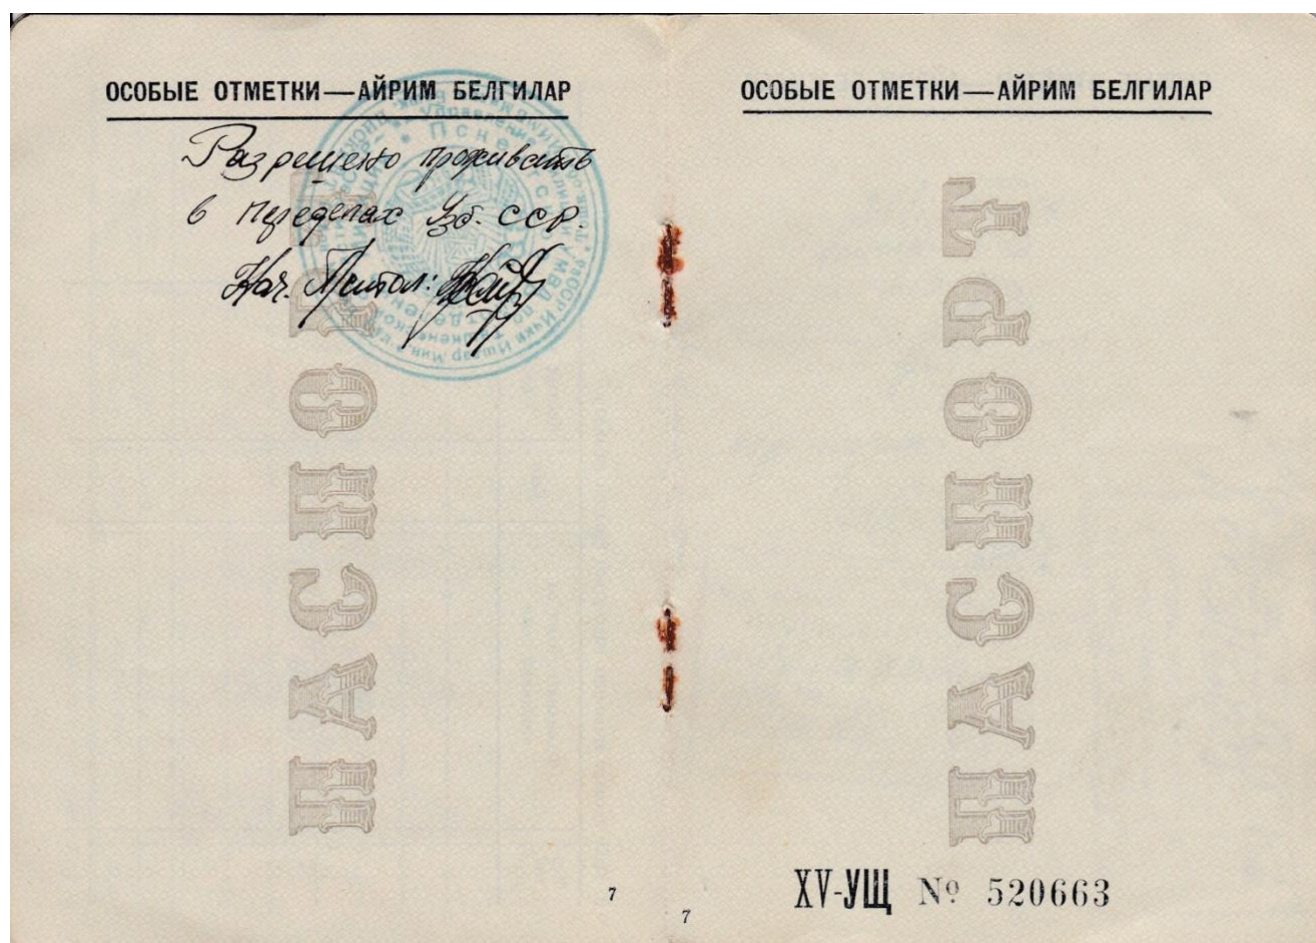 ОСОБЫЕ ОТМЕТКИ—АЙРИМ БЕЛГИЛАР
Разрешено проживать
в пределах Уз. ССР.
Нач.
7
ОСОБЫЕ ОТМЕТКИ—АЙРИМ БЕЛГИЛАР
ПАСПОРТ
7
XV-УЩ № 520663